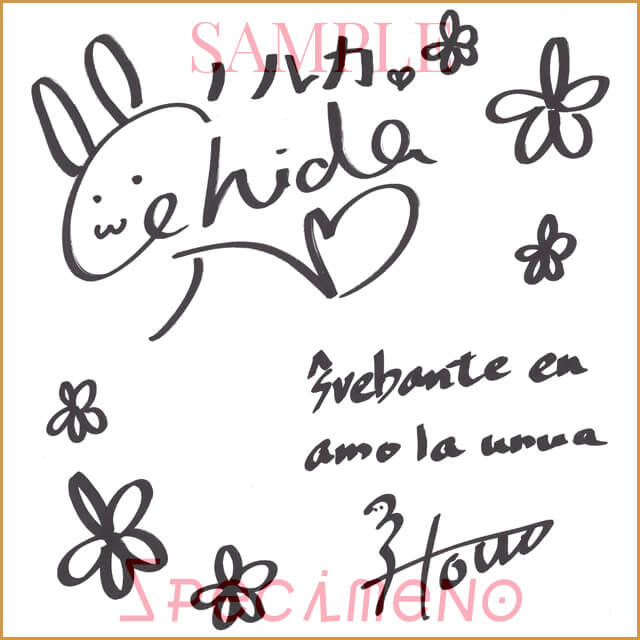 SAMPLE
ノルカ
ehida
ŝvebante en
amo la unua
Specimeno